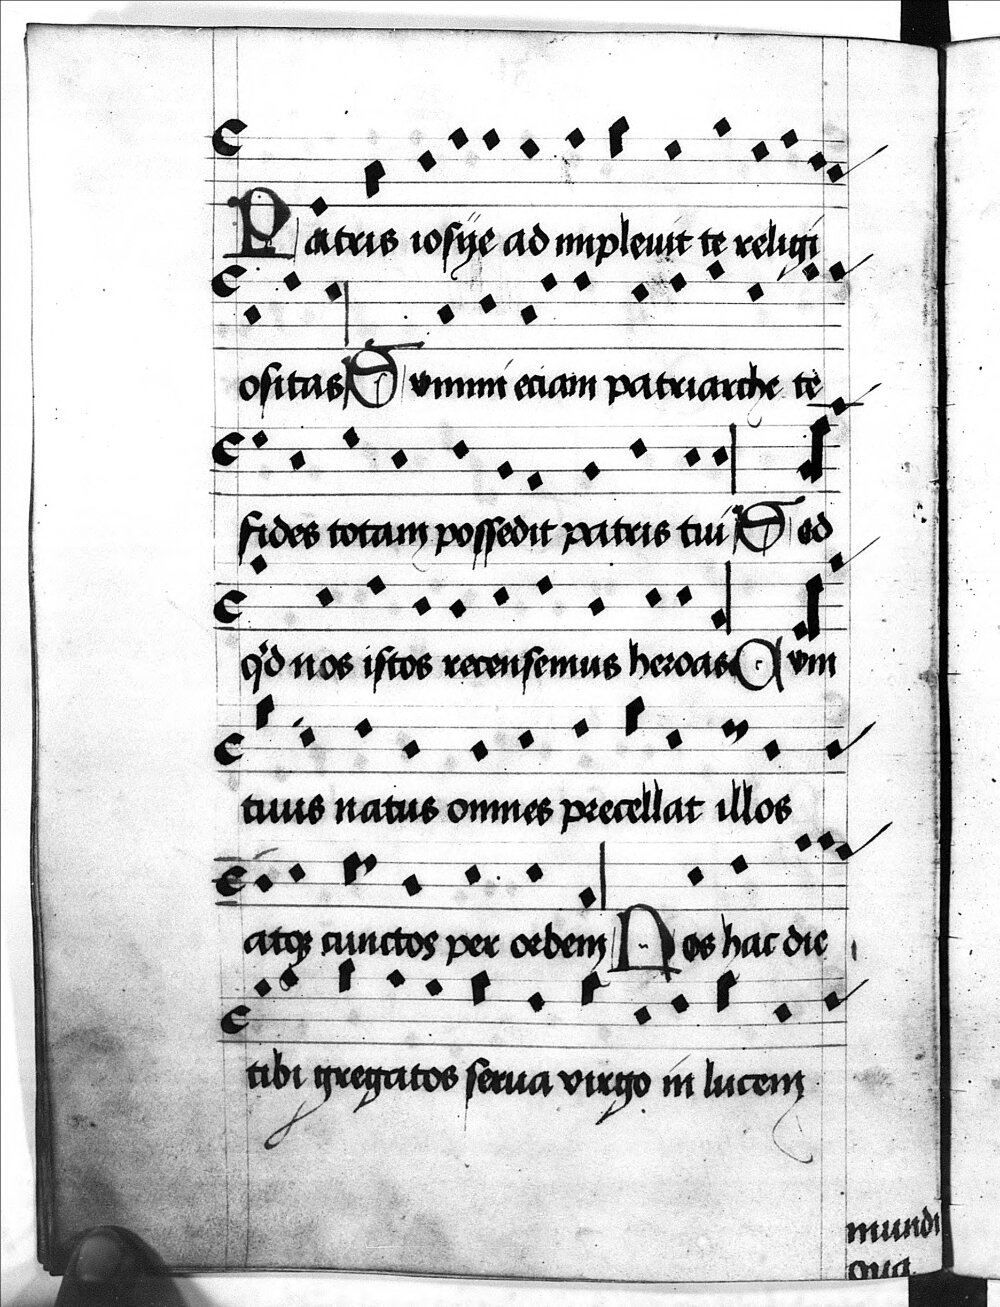 Patris iosye ad impleuit te religi
ositas Summi eciam patriarche te
fides totam possedit patris tui Sed
qd nos istos recensemus heroas Cum
tuus natus omnes precellat illos
atq cunctos per orbem Nos hac die
tibi gregatos serua virgo in lucem
mundi
qua